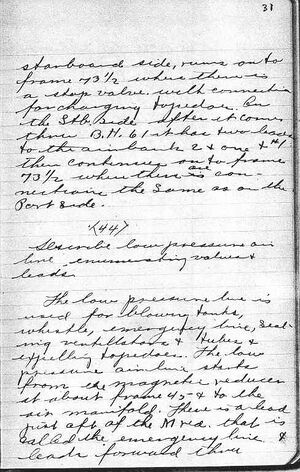 31
starboard side, runs on to
frame 73½ where there is
a stop valve with connection
for charging torpedoes. On
the Stb. side after it comes
thru B.H. 61 it has two leads
to the air bank 2 & one #1
then continues on to frame
73½ where there are con-
nections the same as on the
Port side.
(44)
Describe low pressure air
line enumerating valves &
leads.
The low pressure line is
used for blowing tanks,
whistle, emergency line, seat-
ing ventilators & tubes &
expelling torpedoes. The low
pressure air line starts
from the magnetic reducer
at about frame 45 & to the
air manifold. There is a lead
just aft of the that is
called the emergency line &
leads forward thru